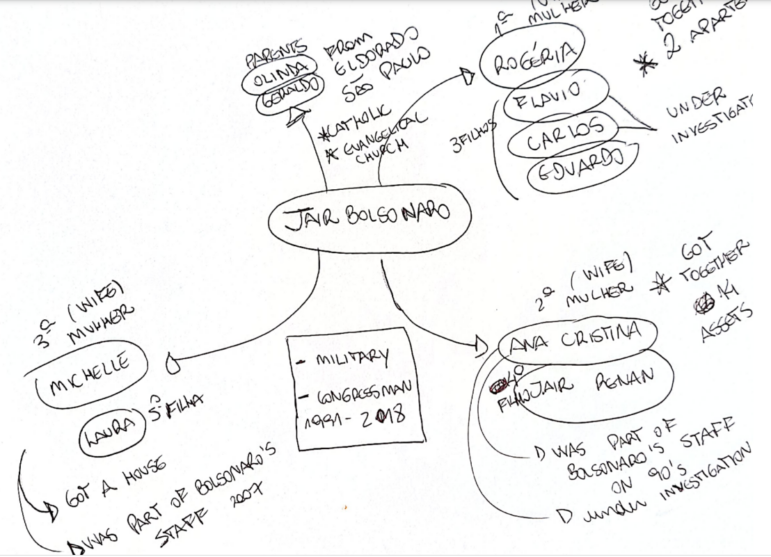 PARENTS
OLINDA
GERALDO
FROM
ELDORADO
SÃO PAULO
*CATHOLIC
* EVANGELICAL
CHURCH
1ª
MULHER
ROGÉRIA
3 FILHOS
FLAVIO
CARLOS
EDUARDO
* 2
UNDER
JAIR BOLSONARO
3ª (WIFE)
MULHER
MICHELLE
LAURA
5ª FILHA
GOT A HOUSE
WAS PART OF BOLSONARO'S
STAFF 2007
- MILITARY
- CONGRESSMAN
1991-2018
2ª (WIFE)
MULHER
* GOT
TOGETHER
14
ASSETS
ANA CRISTINA
4º
FILHO JAIR RENAN
WAS PART OF
BOLSONARO'S STAFF
ON 90'S
under INVESTIGATION